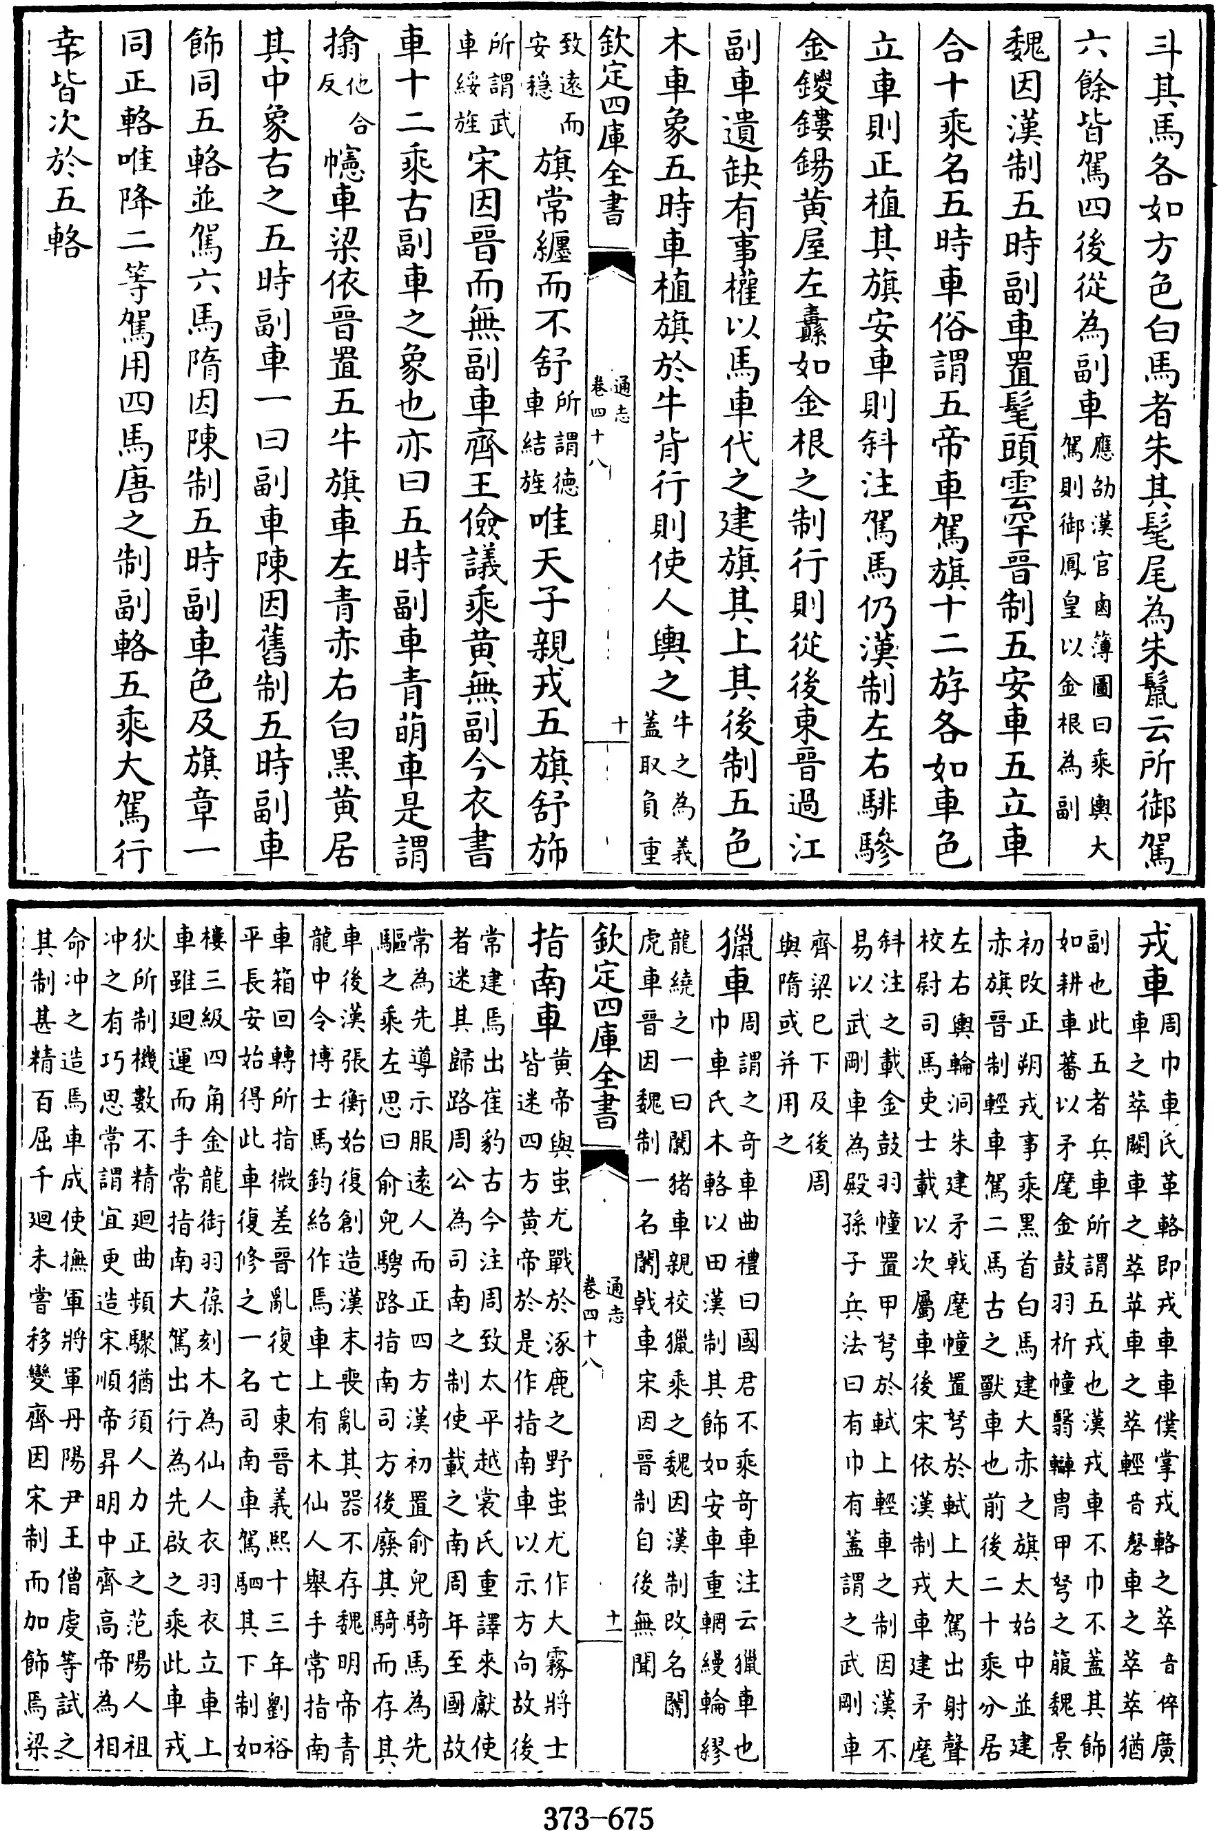 斗其馬各如方色白馬者朱其髦尾為朱鬛云所御駕
六餘皆駕四後從為副車應劭漢官鹵簿圖曰乘輿大駕則御鳳皇以金根為副
魏因漢制五時副車置髦頭雲罕晉制五安車五立車
合十乘名五時車俗謂五帝車駕旗十二斿各如車色
立車則正植其旗安車則斜注駕馬仍漢制左右騑驂
金鍐鏤鍚黄屋左纛如金根之制行則從後東晉過江
副車遺缺有事權以馬車代之建旗其上其後制五色
木車象五時車植旗於牛背行則使人輿之牛之為義蓋取負重
欽定四庫全書
通志
卷四十八
十
致遠而安穩旗常纒而不舒所謂德車結旌唯天子親戎五旗舒斾
所謂武車綏旌宋因晉而無副車齊王儉議乘黄無副今衣書
車十二乘古副車之象也亦曰五時副車青萌車是謂
搚他合反幰車梁依晉置五牛旗車左青赤右白黑黄居
其中象古之五時副車一曰副車陳因舊制五時副車
飾同五輅並駕六馬隋因陳制五時副車色及旗章一
同正輅唯降二等駕用四馬唐之制副輅五乘大駕行
幸皆次於五輅
戎車周巾車氏革輅即戎車車僕掌戎輅之萃音倅廣
車之萃闕車之萃苹車之萃輕音磬車之萃萃猶
副也此五者兵車所謂五戎也漢戎車不巾不蓋其飾
如耕車蕃以矛麾金鼓羽析幢翳轊胄甲弩之箙魏景
初改正朔戎事乘黑首白馬建大赤之旗太始中並建
赤旗晉制輕車駕二馬古之獸車也前後二十乘分居
左右輿輪洞朱建矛戟麾幢置弩於軾上大駕出射聲
校尉司馬吏士載以次屬車後宋依漢制戎車建矛麾
斜注之載金鼓羽幢置甲弩於軾上輕車之制因漢不
易以武剛車為殿孫子兵法曰有巾有蓋謂之武剛車
齊梁已下及後周
與隋或并用之
獵車周謂之奇車曲禮曰國君不乘奇車注云獵車也
巾車氏木輅以田漢制其飾如安車重輞縵輪繆
龍繞之一曰闟猪車親校獵乘之魏因漢制改名闟
虎車晉因魏制一名闟戟車宋因晉制自後無聞
欽定四庫全書
通志
卷四十八
十一
指南車黄帝與蚩尤戰於涿鹿之野蚩尤作大霧將士
皆迷四方黄帝於是作指南車以示方向故後
常建焉出崔豹古今注周致太平越裳氏重譯來獻使
者迷其歸路周公為司南之制使載之南周年至國故
常為先導示服遠人而正四方漢初置俞兒騎馬為先
驅之乘左思曰俞兒騁路指南司方後廢其騎而存其
車後漢張衡始復創造漢末喪亂其器不存魏明帝青
龍中令博士馬鈞紹作焉車上有木仙人舉手常指南
車箱回轉所指微差晉亂復亡東晉義熙十三年劉裕
平長安始得此車復修之一名司南車駕駟其下制如
樓三級四角金龍銜羽葆刻木為仙人衣羽衣立車上
車雖迴運而手常指南大駕出行為先啟之乘此車戎
狄所制機數不精迴曲頻驟猶須人力正之范陽人祖
冲之有巧思常謂宜更造宋順帝昇明中齊高帝為相
命冲之造焉車成使撫軍將軍丹陽尹王僧虔等試之
其制甚精百屈千廻未嘗移變齊因宋制而加飾焉梁
373-675